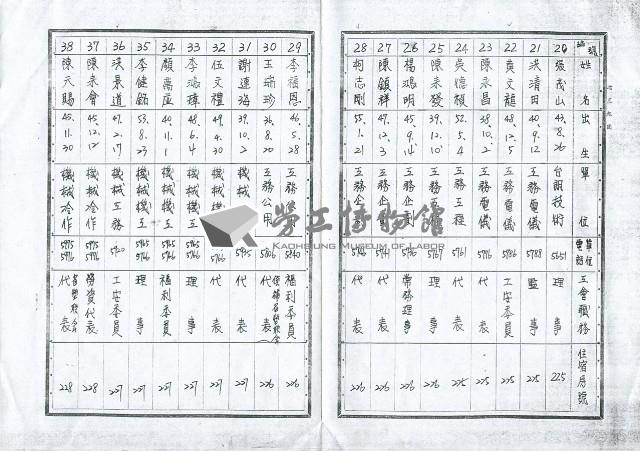 編號 姓名 出生 單位 單位電話 工會職務 住宿房號
20 張茂山 43.8.26 台朔技術 5651 理事 225
21 洪清田 40.9.12 工務電儀 5788 監事 225
22 黃文龍 48.12.5 工務電儀 5786 工安委員 225
23 陳永昌 38.10.2 工務電儀 5776 代表 225
24 吳憶楨 52.5.4 工務工程 5761 代表 225
25 陳來發 39.12.10 工務企劃 5767 理事 226
26 楊鴻明 45.9.14 工務企劃 常務理事 226
27 陳鎮祥 47.12.3 工務企劃 代表 226
28 柯志剛 55.1.21 工務企劃 代表 226
29 李福恩 46.5.28 工務公用 5840 福利委員 226
30 王瑞珍 36.8.20 工務公用 5806 代表 226
31 謝連海 39.10.2 機械 5795 代表 227
32 伍文禮 49.4.30 機械工 代表 227
33 李鴻璋 48.6.4 機械工 理事 227
34 顏萬座 40.11.1 機械工 福利委員 227
35 李健銘 53.8.23 機械工 理事 227
36 洪景道 47.2.17 機械工務 5720 工安委員 227
37 陳來會 45.12.12 機械冷作 5775 5776 勞資代表 228
38 陳天賜 45.11.30 機械冷作 5775 5776 代表 228
勞工博物館
KAOHSIUNG MUSEUM OF LABOR